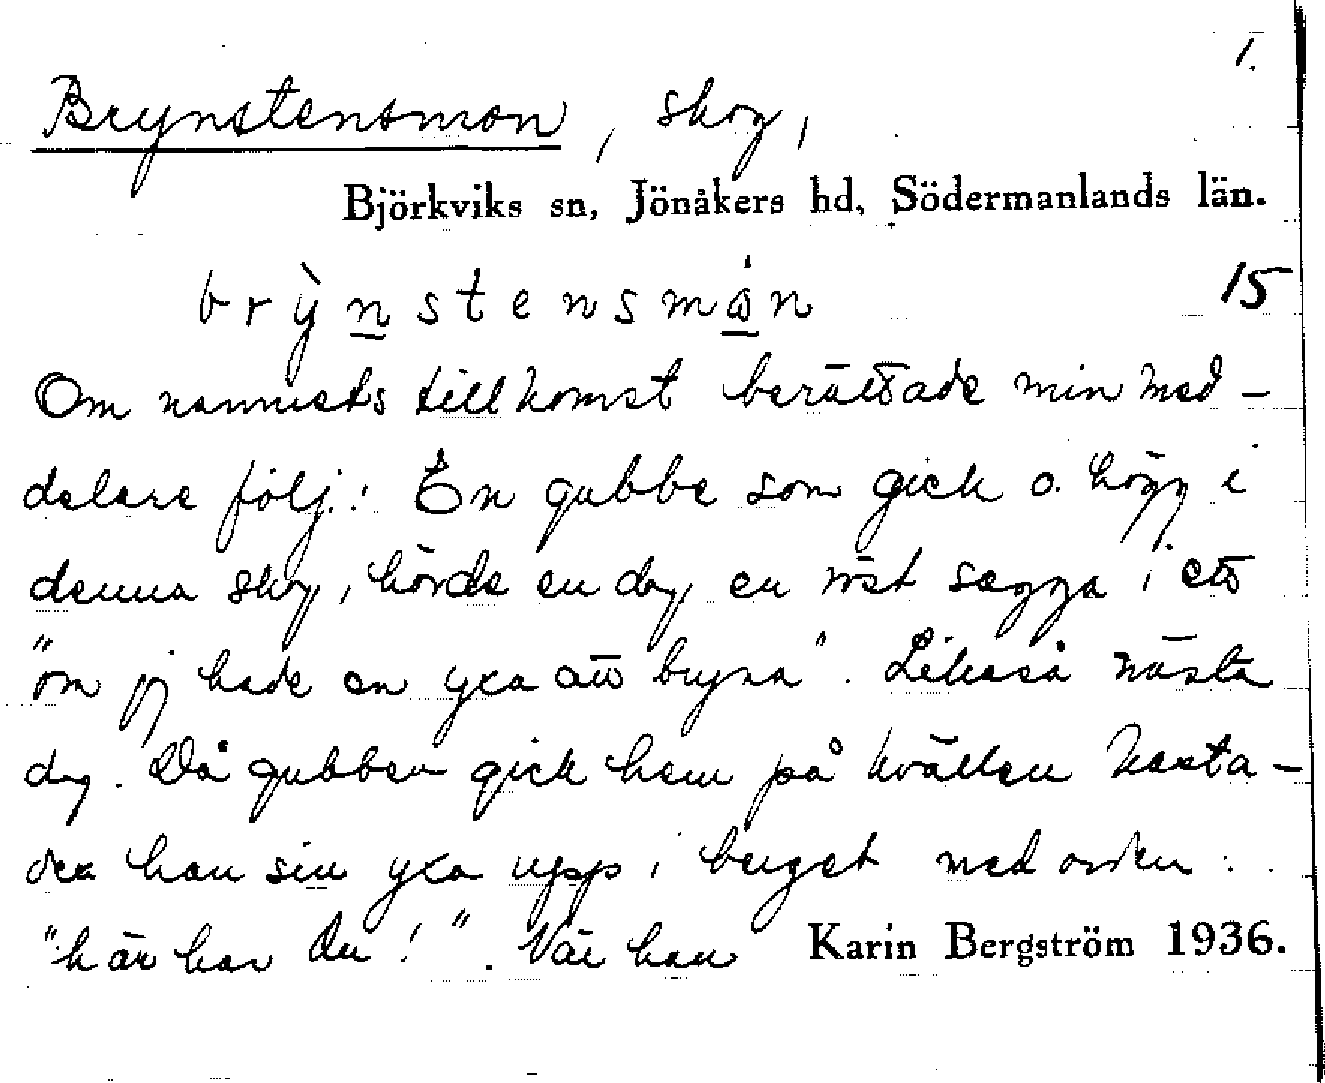 1.
Brynstensmon, skog,
Björkviks sn, Jönåkers hd, Södermanlands län.
brỳnstensmån 15
Om namnets tillkomst berättade min med-
delare följ.: En gubbe som gick o. högg i
denna skog, hörde en dag en röst sägga: ett
"om jej hade en yxa att bryna". Likaså nästa
dag. Då gubben gick hem på kvällen kasta-
des han sin yxa upp i berget med orden:
"här har du!". När han
Karin Bergström 1936.